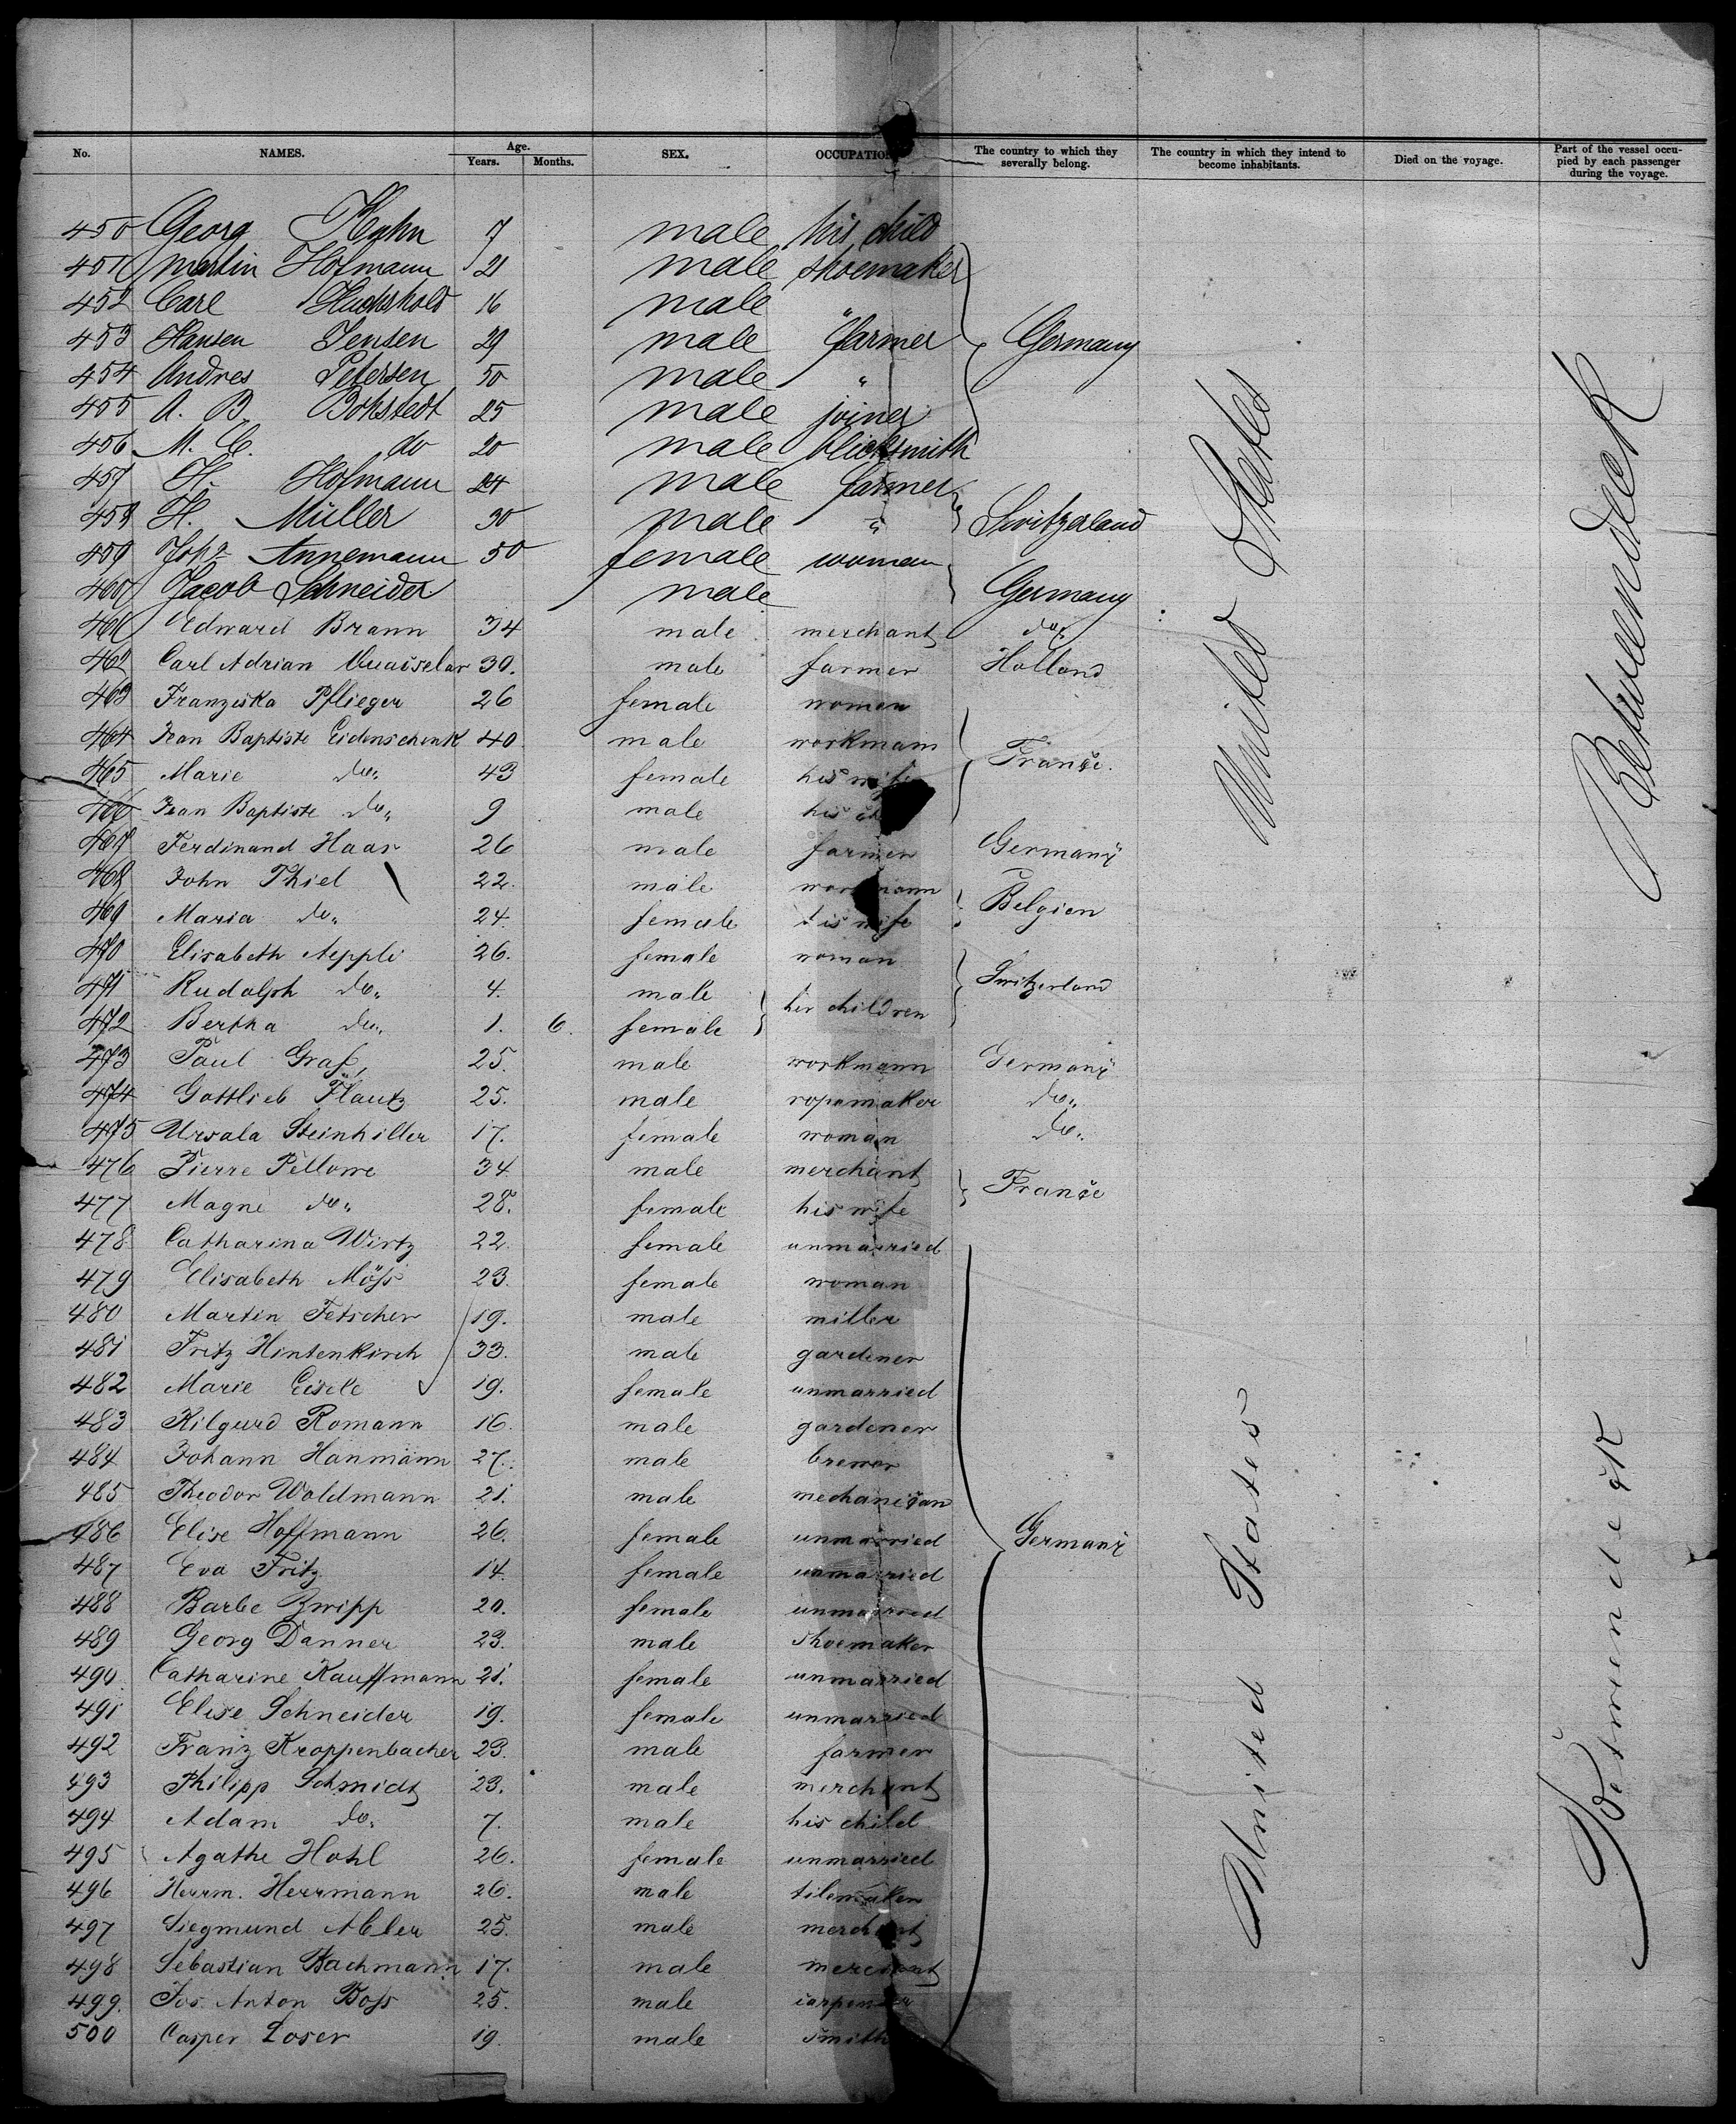 No. NAMES. Age. Years. Months. SEX. OCCUPATION The country to which they severally belong. The country in which they intend to become inhabitants. Died on the voyage. Part of the vessel occupied by each passenger during the voyage.
450 Georg Huhn 7 male his child
451 Martin Hofmann 21 male shoemaker
452 Carl 16 male "
453 Hansen Jensen 29 male farmer Germany
454 Andres Petersen 50 male "
455 A. B. Bohstedt 25 male joiner
456 M. C. do 20 male blicksmith
457 H. Hofmann 24 male farmer
458 H. Müller 30 male " Switzerland
459 Annemann 50 female woman
460 Jacob Schneider male Germany
461 Edward Brann 34 male merchant do.
462 Carl Adrian 30. male farmer Holland
463 Franziska Pflieger 26 female women
464 Jean Baptiste Eidenschenk 40 male workmann France.
465 Marie do. 43 female his wife
466 Jean Baptiste do. 9 male his
467 Ferdinand Haar 26 male farmer Germany
468 John Thiel 22. male workmann Belgien
469 Maria do. 24. female his wife
470 Elisabeth Aeppli 26. female woman Switzerland
471 Rudolph do. 4. male her children
472 Bertha do. 1. 6. female
473 Paul Graf 25. male workmann Germany
474 Gottlieb Flautz 25. male ropemaker do.
475 Ursala Steinhiller 17. female woman do.
476 Pierre Pellowe 34. male merchant France
477 Magne do. 28. female his wife
478 Catharina Wirtz 22. female unmarried
479 Elisabeth Möss 23. female woman
480 Martin Fetscher 19. male miller
481 Fritz Hintenkirch 33. male gardener
482 Marie Eisele 19. female unmarried
483 Kilgurd Romann 16. male gardener
484 Johann Hanmann 27. male brewer
485 Theodor Woldmann 21. male mechanican
486 Elise Hoffmann 26. female unmarried Germany
487 Eva Fritz 14. female unmarried
488 Barbe Zwipp 20. female unmarried
489 Georg Danner 23. male shoemaker
490 Catharine Kauffmann 21. female unmarried
491 Elise Schneider 19. female unmarried
492 Franz Kroppenbacher 23. male farmer
493 Philipp Schmidt 23. male merchant
494 Adam do. 7. male his child
495 Agathe Hohl 26. female unmarried
496 Herrm. Herrmann 26. male tilemaker
497 Siegmund Abler 25. male merchant
498 Sebastian Bachmann 17. male merchant
499. Jos. Anton Boss 25. male carpenter
500 Casper Loser 19 male smith
United States
Betweendeck
United States
Betweendeck